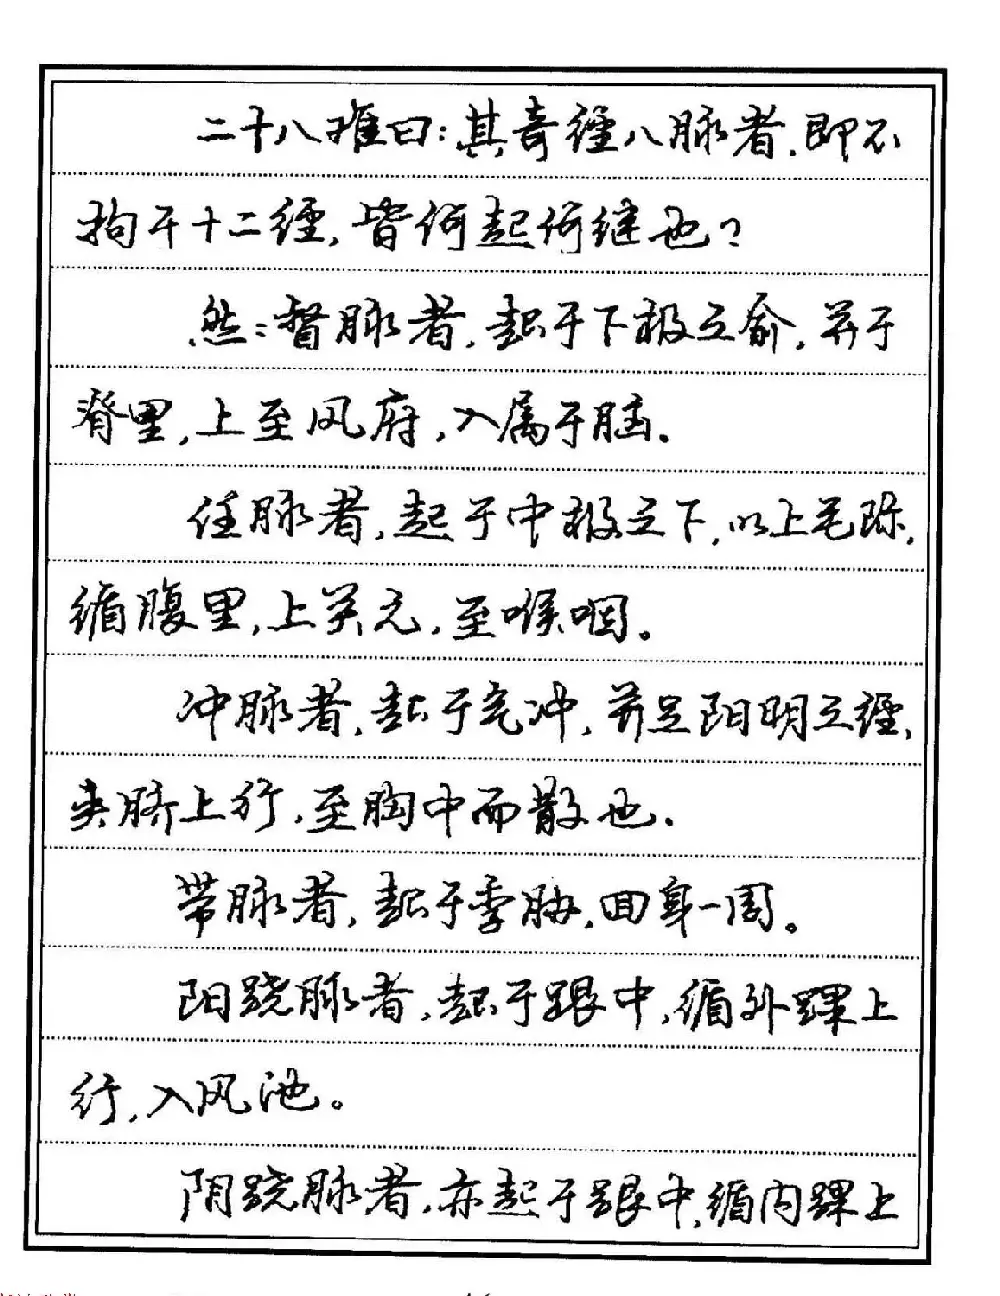 二十八难曰：其奇经八脉者，即不
拘于十二经，皆何起何继也？
然：督脉者，起于下极之俞，并于
脊里，上至风府，入属于脑。
任脉者，起于中极之下，以上毛际，
循腹里，上关元，至喉咽。
冲脉者，起于气冲，并足阳明之经，
夹脐上行，至胸中而散也。
带脉者，起于季胁，回身一周。
阳跷脉者，起于跟中，循外踝上
行，入风池。
阴跷脉者，亦起于跟中，循内踝上